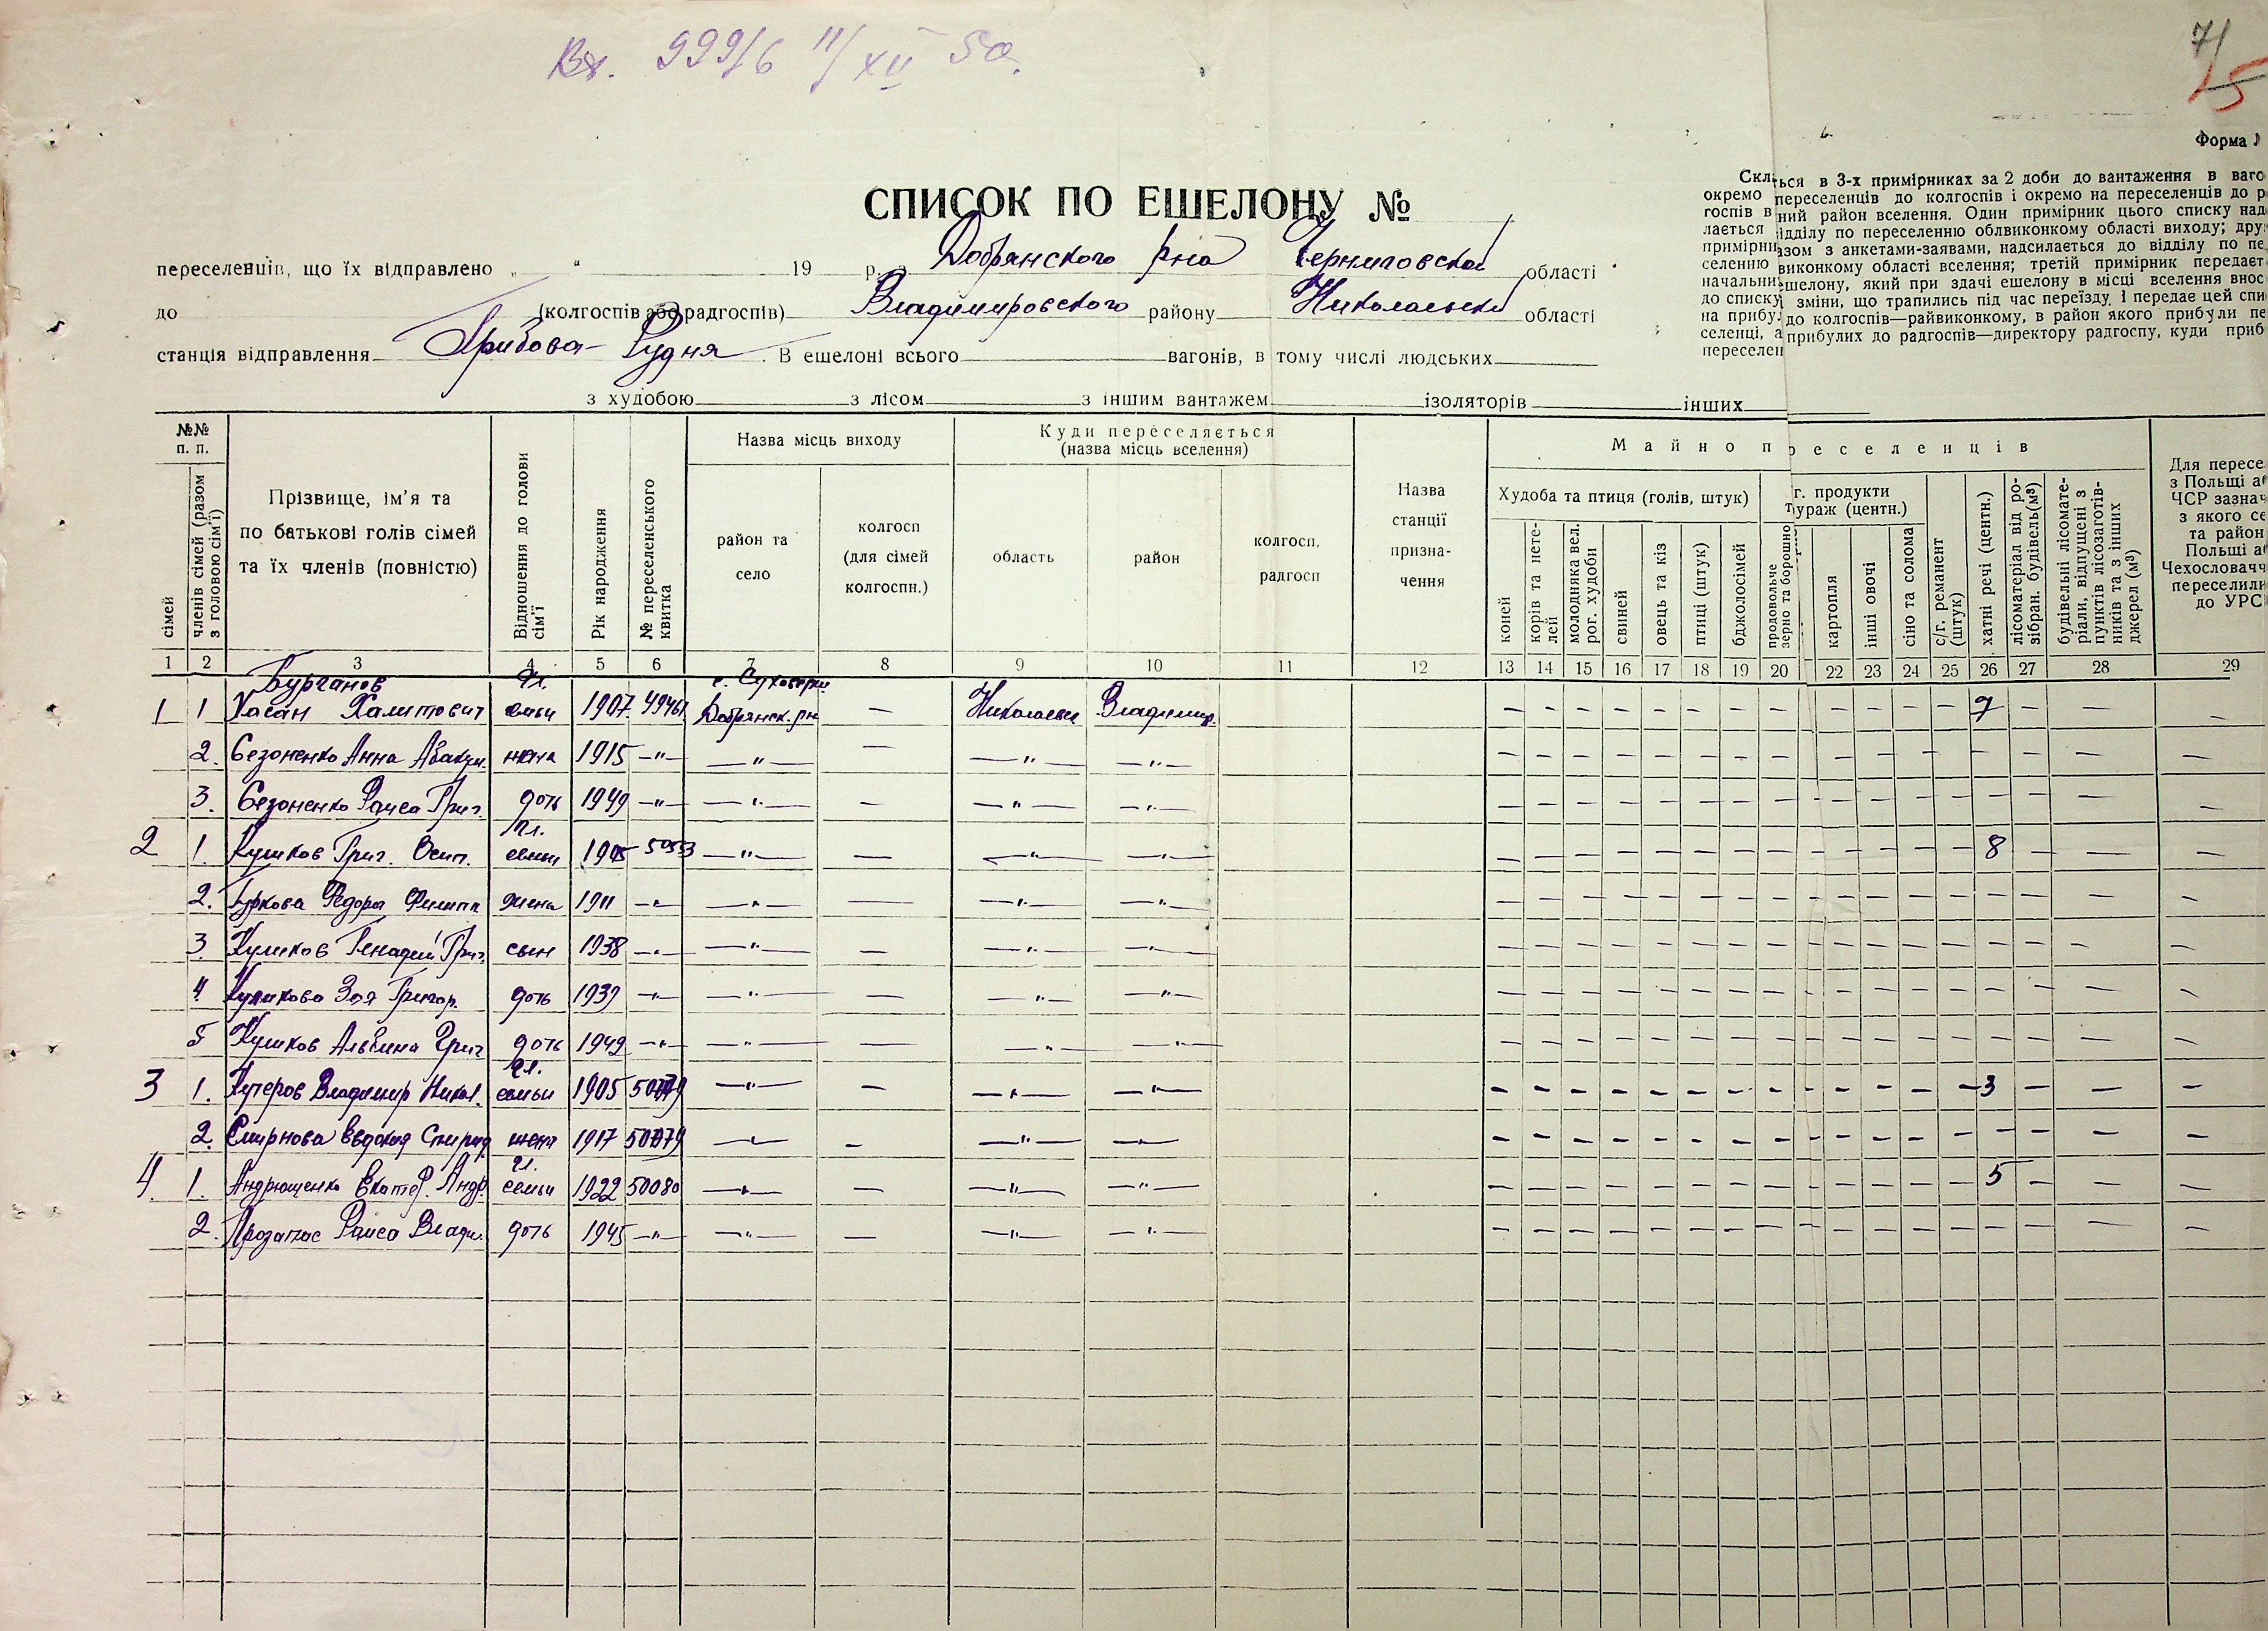 Вх. 999/6 11/XII 50.
7/5
Форма
СПИСОК ПО ЕШЕЛОНУ №
переселенців, що їх відправлено „ “ 19 р. з Добрянского р-на Черниговской області
до (колгоспів або радгоспів) Владимировского району Николаевской області
станція відправлення Грибова-Рудня. В ешелоні всього вагонів, в тому числі людських
з худобою з лісом з іншим вантажем ізоляторів інших
ться в 3-х примірниках за 2 доби до вантаження в ваго
окремо переселенців до колгоспів і окремо на переселенців до р
госпів в ний район вселення. Один примірник цього списку над
лається ідділу по переселенню облвиконкому області виходу; дру
примірни азом з анкетами-заявами, надсилається до відділу по пе
селенню виконкому області вселення; третій примірник передает
начальни ешелону, який при здачі ешелону в місці вселення внос
до списку зміни, що трапились під час переїзду і передає цей спи
на прибу до колгоспів—райвиконкому, в район якого прибули пе
селенці, а прибулих до радгоспів—директору радгоспу, куди приб
переселен
№№ п. п.
сімей
членів сімей (разом з головою сім'ї)
Прізвище, ім'я та по батькові голів сімей та їх членів (повністю)
Відношення до голови сім'ї
Рік народження
№ переселенського квитка
Назва місць виходу
район та село
колгосп (для сімей колгоспн.)
Куди переселяється (назва місць вселення)
область
район
колгосп, радгосп
Назва станції призна- чення
Майно переселенців
Худоба та птиця (голів, штук)
коней
корів та нете- лей
молодняка вел. рог. худоби
свиней
овець та кіз
птиці (штук)
бджолосімей
г. продукти
ураж (центн.)
продовольче зерно та борошно
картопля
інші овочі
сіно та солома
с/г. реманент (штук)
хатні речі (центн.)
лісоматеріал від ро- зібран. будівель (м³)
будівельні лісомате- ріали, відпущені з пунктів лісозаготів- ників та з інших джерел (м³)
Для пересе
з Польщі а
ЧСР зазнач
з якого се
та район
Польщі а
Чехословачч
переселили
до УРС
1 2 3 4 5 6 7 8 9 10 11 12 13 14 15 16 17 18 19 20 22 23 24 25 26 27 28 29
Бурганов гл.
1 1 Хасан Халитович семьи 1907 49461 Добрянск. рн — Николаевск Владимир. — — — — — — — — — — — — — 7 — — —
2. Сезоненко Анна Абакум. жена 1915 —"— —"— — —"— —"—
3. Сезоненко Раиса Григ. доть 1949 —"— —"— — —"— —"—
гл.
2 1. Куликов Григ. Осип. семьи 1905 —"— — —"— —"— 8
2. Федора Филипп жена 1911 —"— —"— — —"— —"—
3. Куликов Генадий Григ. сын 1938 —"— —"— — —"— —"—
4. Куликова Зоя Григор. доть 1939 —"— —"— — —"— —"—
5 Куликов Альбина Григ доть 1949 —"— —"— — —"— —"—
гл.
3 1. Кутеров Владимир Никол. семьи 1905 50079 —"— — —"— —"— 3
2. Смирнова Евдокия Спирид. жена 1917 50079 —"— — —"— —"—
гл.
4 1. Андрющенко Екатер. Андр. семьи 1922 50080 —"— — —"— —"— 5
2. Раиса Влади. доть 1945 —"— —"— — —"— —"—